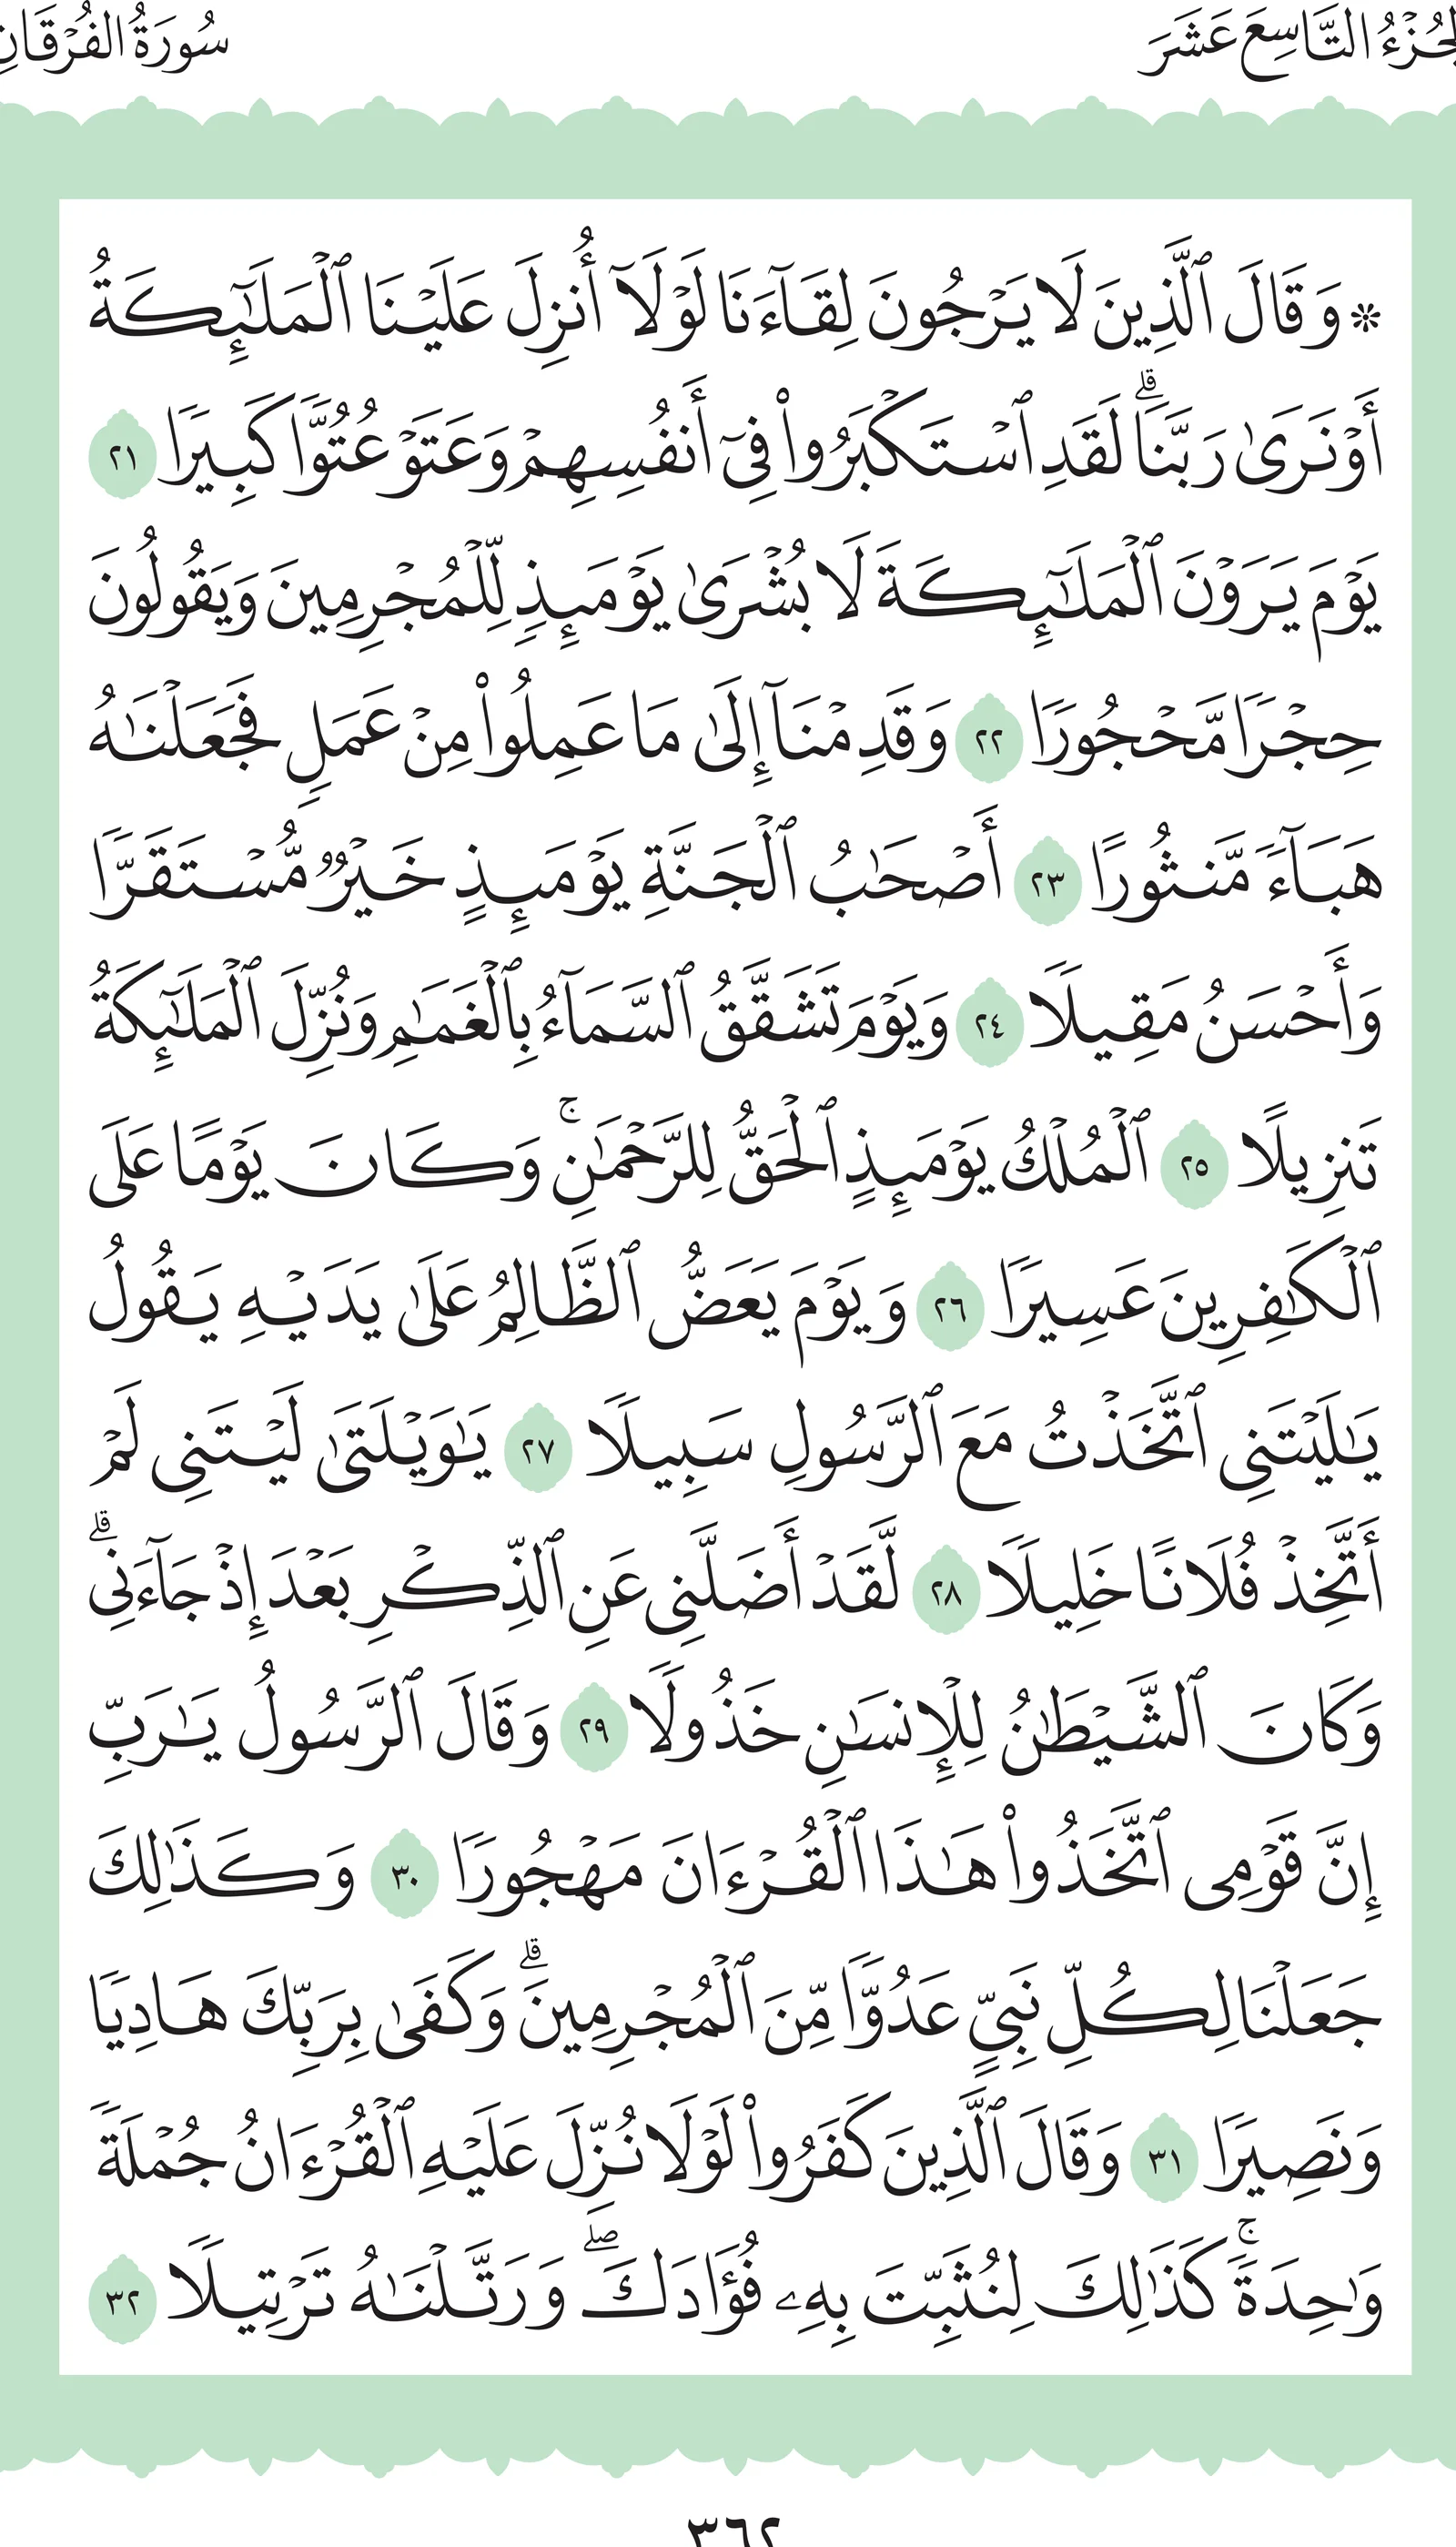 الجُزْءُ التَّاسِعَ عَشَرَ
سُورَةُ الفُرْقَانِ
* وَقَالَ ٱلَّذِينَ لَا يَرْجُونَ لِقَآءَنَا لَوْلَآ أُنزِلَ عَلَيْنَا ٱلْمَلَٰٓئِكَةُ
أَوْ نَرَىٰ رَبَّنَاۗ لَقَدِ ٱسْتَكْبَرُوا۟ فِىٓ أَنفُسِهِمْ وَعَتَوْ عُتُوًّا كَبِيرًا ٢١
يَوْمَ يَرَوْنَ ٱلْمَلَٰٓئِكَةَ لَا بُشْرَىٰ يَوْمَئِذٍ لِّلْمُجْرِمِينَ وَيَقُولُونَ
حِجْرًا مَّحْجُورًا ٢٢ وَقَدِمْنَآ إِلَىٰ مَا عَمِلُوا۟ مِنْ عَمَلٍ فَجَعَلْنَٰهُ
هَبَآءً مَّنثُورًا ٢٣ أَصْحَٰبُ ٱلْجَنَّةِ يَوْمَئِذٍ خَيْرٌ مُّسْتَقَرًّا
وَأَحْسَنُ مَقِيلًا ٢٤ وَيَوْمَ تَشَقَّقُ ٱلسَّمَآءُ بِٱلْغَمَٰمِ وَنُزِّلَ ٱلْمَلَٰٓئِكَةُ
تَنزِيلًا ٢٥ ٱلْمُلْكُ يَوْمَئِذٍ ٱلْحَقُّ لِلرَّحْمَٰنِۚ وَكَانَ يَوْمًا عَلَى
ٱلْكَٰفِرِينَ عَسِيرًا ٢٦ وَيَوْمَ يَعَضُّ ٱلظَّالِمُ عَلَىٰ يَدَيْهِ يَقُولُ
يَٰلَيْتَنِى ٱتَّخَذْتُ مَعَ ٱلرَّسُولِ سَبِيلًا ٢٧ يَٰوَيْلَتَىٰ لَيْتَنِى لَمْ
أَتَّخِذْ فُلَانًا خَلِيلًا ٢٨ لَّقَدْ أَضَلَّنِى عَنِ ٱلذِّكْرِ بَعْدَ إِذْ جَآءَنِىۗ
وَكَانَ ٱلشَّيْطَٰنُ لِلْإِنسَٰنِ خَذُولًا ٢٩ وَقَالَ ٱلرَّسُولُ يَٰرَبِّ
إِنَّ قَوْمِى ٱتَّخَذُوا۟ هَٰذَا ٱلْقُرْءَانَ مَهْجُورًا ٣٠ وَكَذَٰلِكَ
جَعَلْنَا لِكُلِّ نَبِىٍّ عَدُوًّا مِّنَ ٱلْمُجْرِمِينَۗ وَكَفَىٰ بِرَبِّكَ هَادِيًا
وَنَصِيرًا ٣١ وَقَالَ ٱلَّذِينَ كَفَرُوا۟ لَوْلَا نُزِّلَ عَلَيْهِ ٱلْقُرْءَانُ جُمْلَةً
وَٰحِدَةًۚ كَذَٰلِكَ لِنُثَبِّتَ بِهِۦ فُؤَادَكَۖ وَرَتَّلْنَٰهُ تَرْتِيلًا ٣٢
٣٦٢